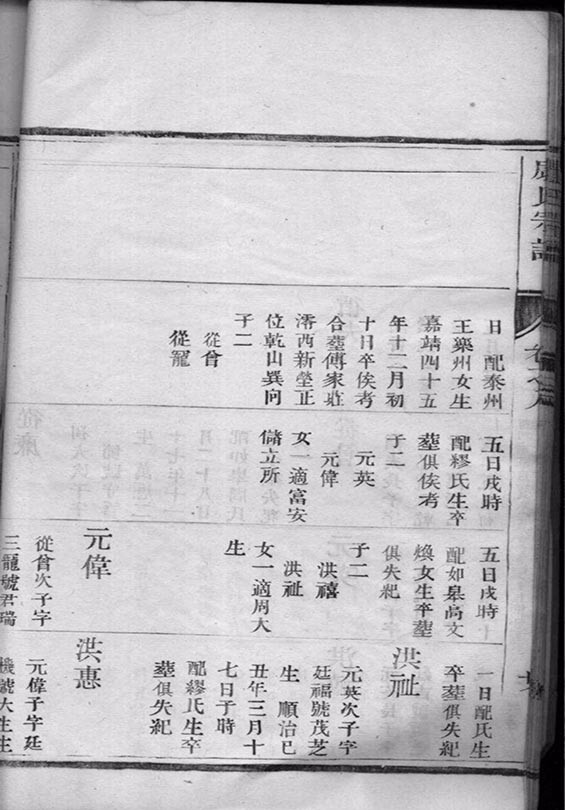 盧氏宗譜
日 配泰州
王樂州女生
嘉靖四十五
年十二月初
十日卒俟考
合塟傅家莊
澪西新塋正
位乾山巽向
子二
從曾
從寵
五日戌時
配繆氏生卒
塟俱俟考
子二
元英
元偉
女一適富安
儲立所
五日戌時
配如臯高文
煥女生卒塟
俱失紀
子二
洪禧
洪祉
女一適周大
生
元偉
從曾次子字
三龍號君瑞
一日配氏生
卒塟俱失紀
洪祉
元英次子字
廷福號茂芝
生 順治己
丑年三月十
七日子時
配繆氏生卒
塟俱失紀
洪惠
元偉子字廷
機號大生生